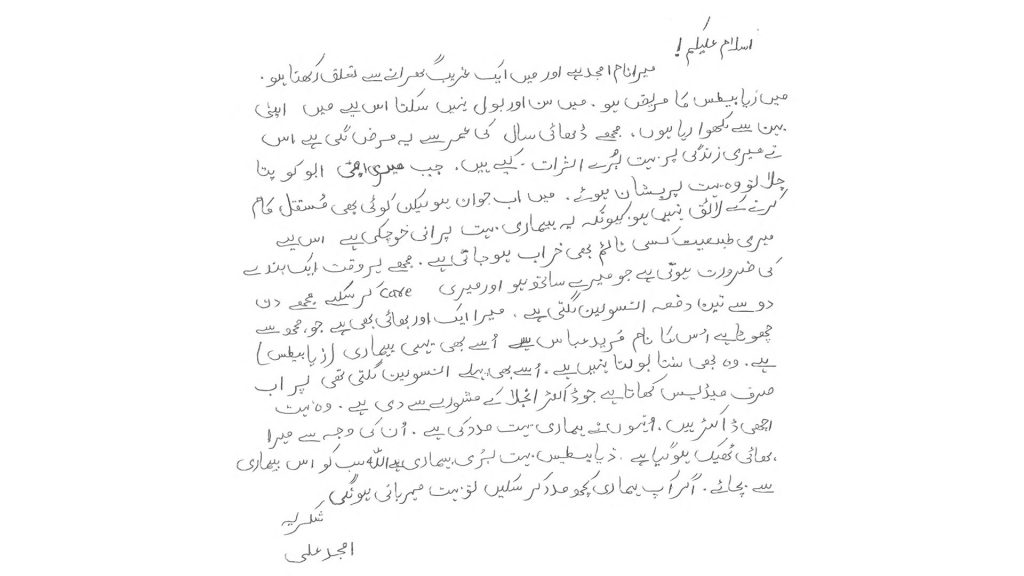 اسلام علیکم!
میرا نام امجد ہے اور میں ایک غریب گھرانے سے تعلق رکھتا ہو۔
میں زیابیطس کا مریض ہو۔ میں سن اور بول نہیں سکتا اس لیے میں اپنی
بہن سے لکھوا رہا ہوں، مجھے ڈھائی سال کی عمر سے یہ مرض لگی ہے اس
نے میری زندگی پر بہت بُرے اثرات کیے ہیں۔ جب میری امی ابو کو پتا
چلا تو وہ بہت پریشان ہوئے۔ میں اب جوان ہو لیکن کوئی بھی مُستقل کام
کرنے کے لائق نہیں ہو کیونکہ یہ بیماری بہت پرانی ہو چکی ہے اس لیے
میری طبیعت کسی ٹائم بھی خراب ہو جاتی ہے۔ مجھے ہر وقت ایک بندے
کی ضرورت ہوتی ہے جو میرے ساتھ ہو اور میری care کر سکے مجھے دن
دو سے تین دفعہ انسولین لگتی ہے۔ میرا ایک اور بھائی بھی ہے جو مجھ سے
چھوٹا ہے اُس کا نام فرید عباس ہے اُسے بھی یہی بیماری (زیابیطس)
ہے۔ وہ بھی سنتا بولتا نہیں ہے۔ اُسے بھی پہلے انسولین لگتی تھی پر اب
صرف میڈیسن کھاتا ہے جو ڈاکٹر انجلا کے مشورے سے دی ہے۔ وہ بہت
اچھی ڈاکٹر ہیں، اُنہوں نے ہماری بہت مدد کی ہے۔ اُن کی وجہ سے میرا
بھائی ٹھیک ہو گیا ہے۔ ذیابیطیس بہت بُری بیماری ہے اللہ سب کو اس بیماری
سے بچائے۔ اگر آپ ہماری کچھ مدد کر سکیں تو بہت مہربانی ہو گی
شکریہ
امجد علی